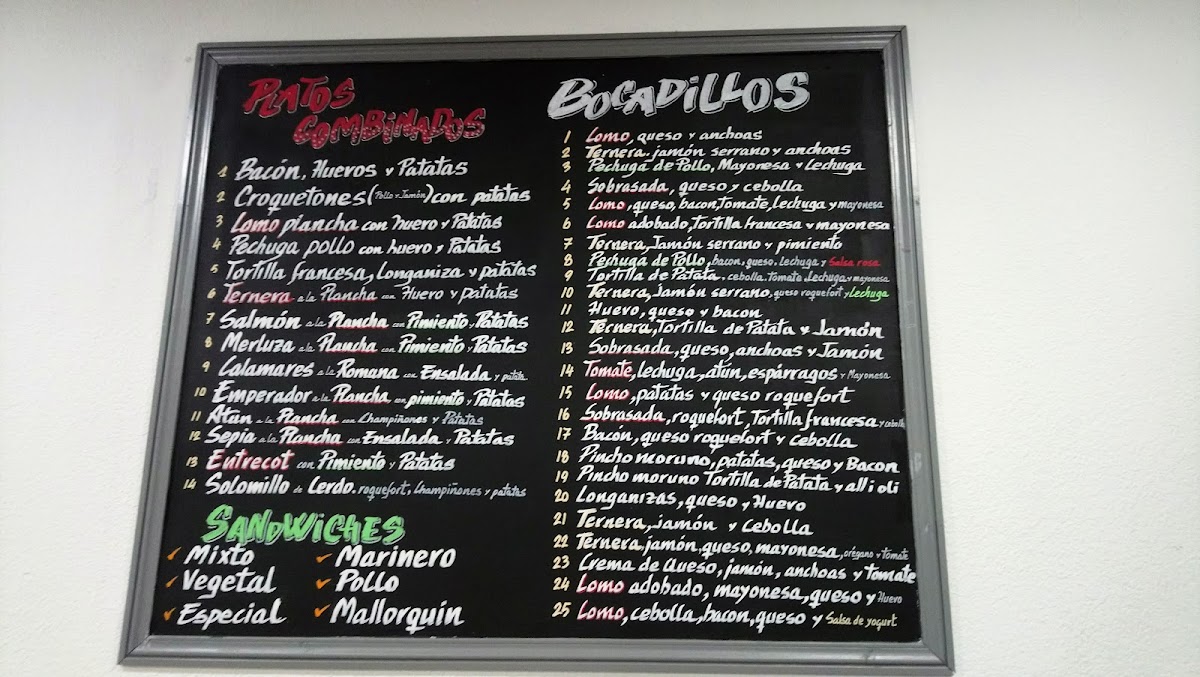 PLATOS
COMBINADOS
1 Bacón, Huevos y Patatas
2 Croquetones (Pollo y Jamón) con patatas
3 Lomo plancha con huevo y Patatas
4 Pechuga pollo con huevo y Patatas
5 Tortilla francesa, Longaniza y patatas
6 Ternera a la Plancha con Huevo y patatas
7 Salmón a la Plancha con Pimiento y Patatas
8 Merluza a la Plancha con Pimiento y Patatas
9 Calamares a la Romana con Ensalada y patata
10 Emperador a la Plancha con pimiento y Patatas
11 Atun a la Plancha con Champiñones y Patatas
12 Sepia a la Plancha con Ensalada y Patatas
13 Entrecot con Pimiento y Patatas
14 Solomillo de Cerdo, roquefort, Champiñones y patatas
SANDWICHES
Mixto
Marinero
Vegetal
Pollo
Especial
Mallorquin
BOCADILLOS
1 Lomo, queso y anchoas
2 Ternera, jamón serrano y anchoas
3 Pechuga de Pollo, Mayonesa y Lechuga
4 Sobrasada, queso y cebolla
5 Lomo, queso, bacon, tomate, lechuga y mayonesa
6 Lomo adobado, Tortilla francesa y mayonesa
7 Ternera, Jamón serrano y pimiento
8 Pechuga de Pollo, bacon, queso, lechuga y Salsa rosa
9 Tortilla de Patata, cebolla, tomate, Lechuga y mayonesa
10 Ternera, Jamón serrano, queso roquefort y Lechuga
11 Huevo, queso y bacon
12 Ternera, Tortilla de Patata y Jamón
13 Sobrasada, queso, anchoas y Jamón
14 Tomate, lechuga, atún, espárragos y Mayonesa
15 Lomo, patatas y queso roquefort
16 Sobrasada, roquefort, Tortilla francesa y cebolla
17 Bacón, queso roquefort y cebolla
18 Pincho moruno, patatas, queso y Bacon
19 Pincho moruno Tortilla de Patata y all i oli
20 Longanizas, queso y Huevo
21 Ternera, jamón y Cebolla
22 Ternera, jamón, queso, mayonesa, orégano y tomate
23 Crema de Queso, jamón, anchoas y Tomate
24 Lomo adobado, mayonesa, queso y Huevo
25 Lomo, cebolla, bacon, queso y Salsa de yogurt